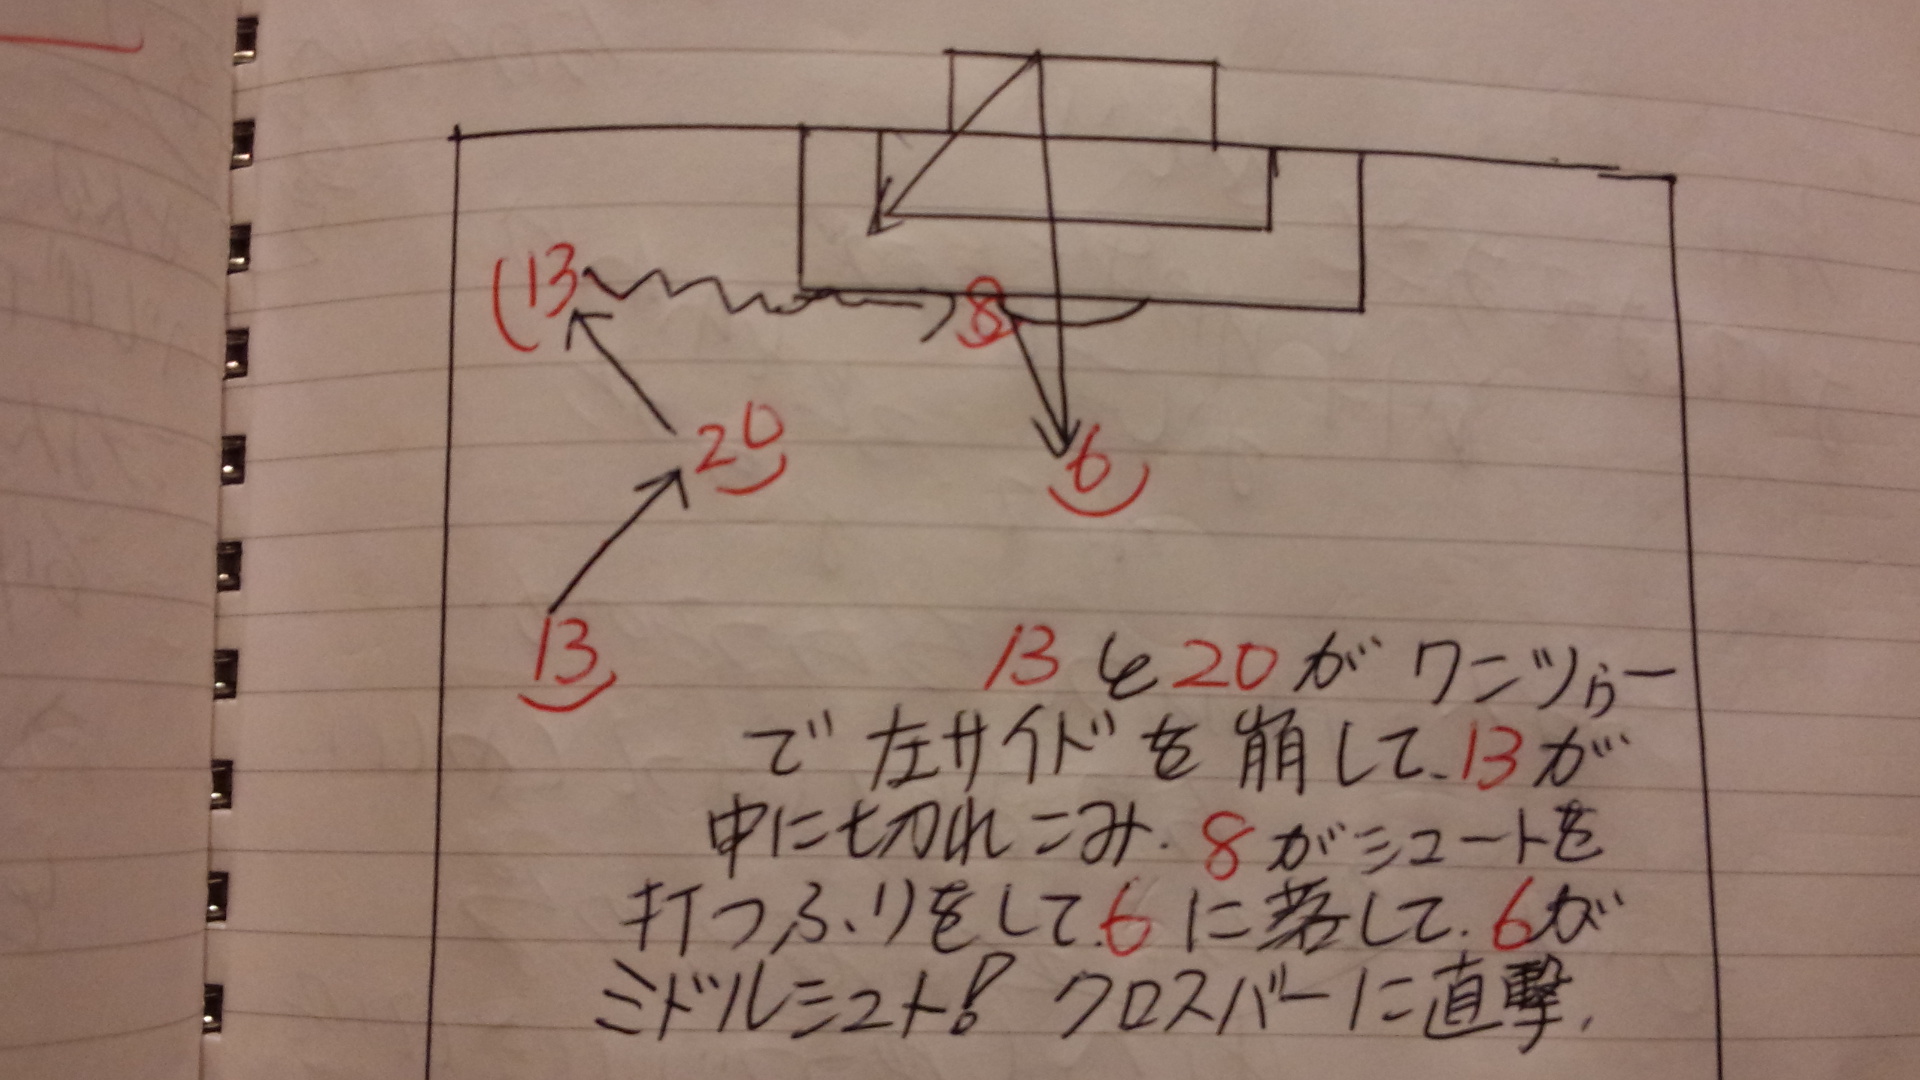 13
8
20
6
13
13と20がワンツゥー
で左サイドを崩して、13が
中に切れこみ、8がシュートを
打つふりをして、6に落して、6が
ミドルシュト! クロスバーに直撃、